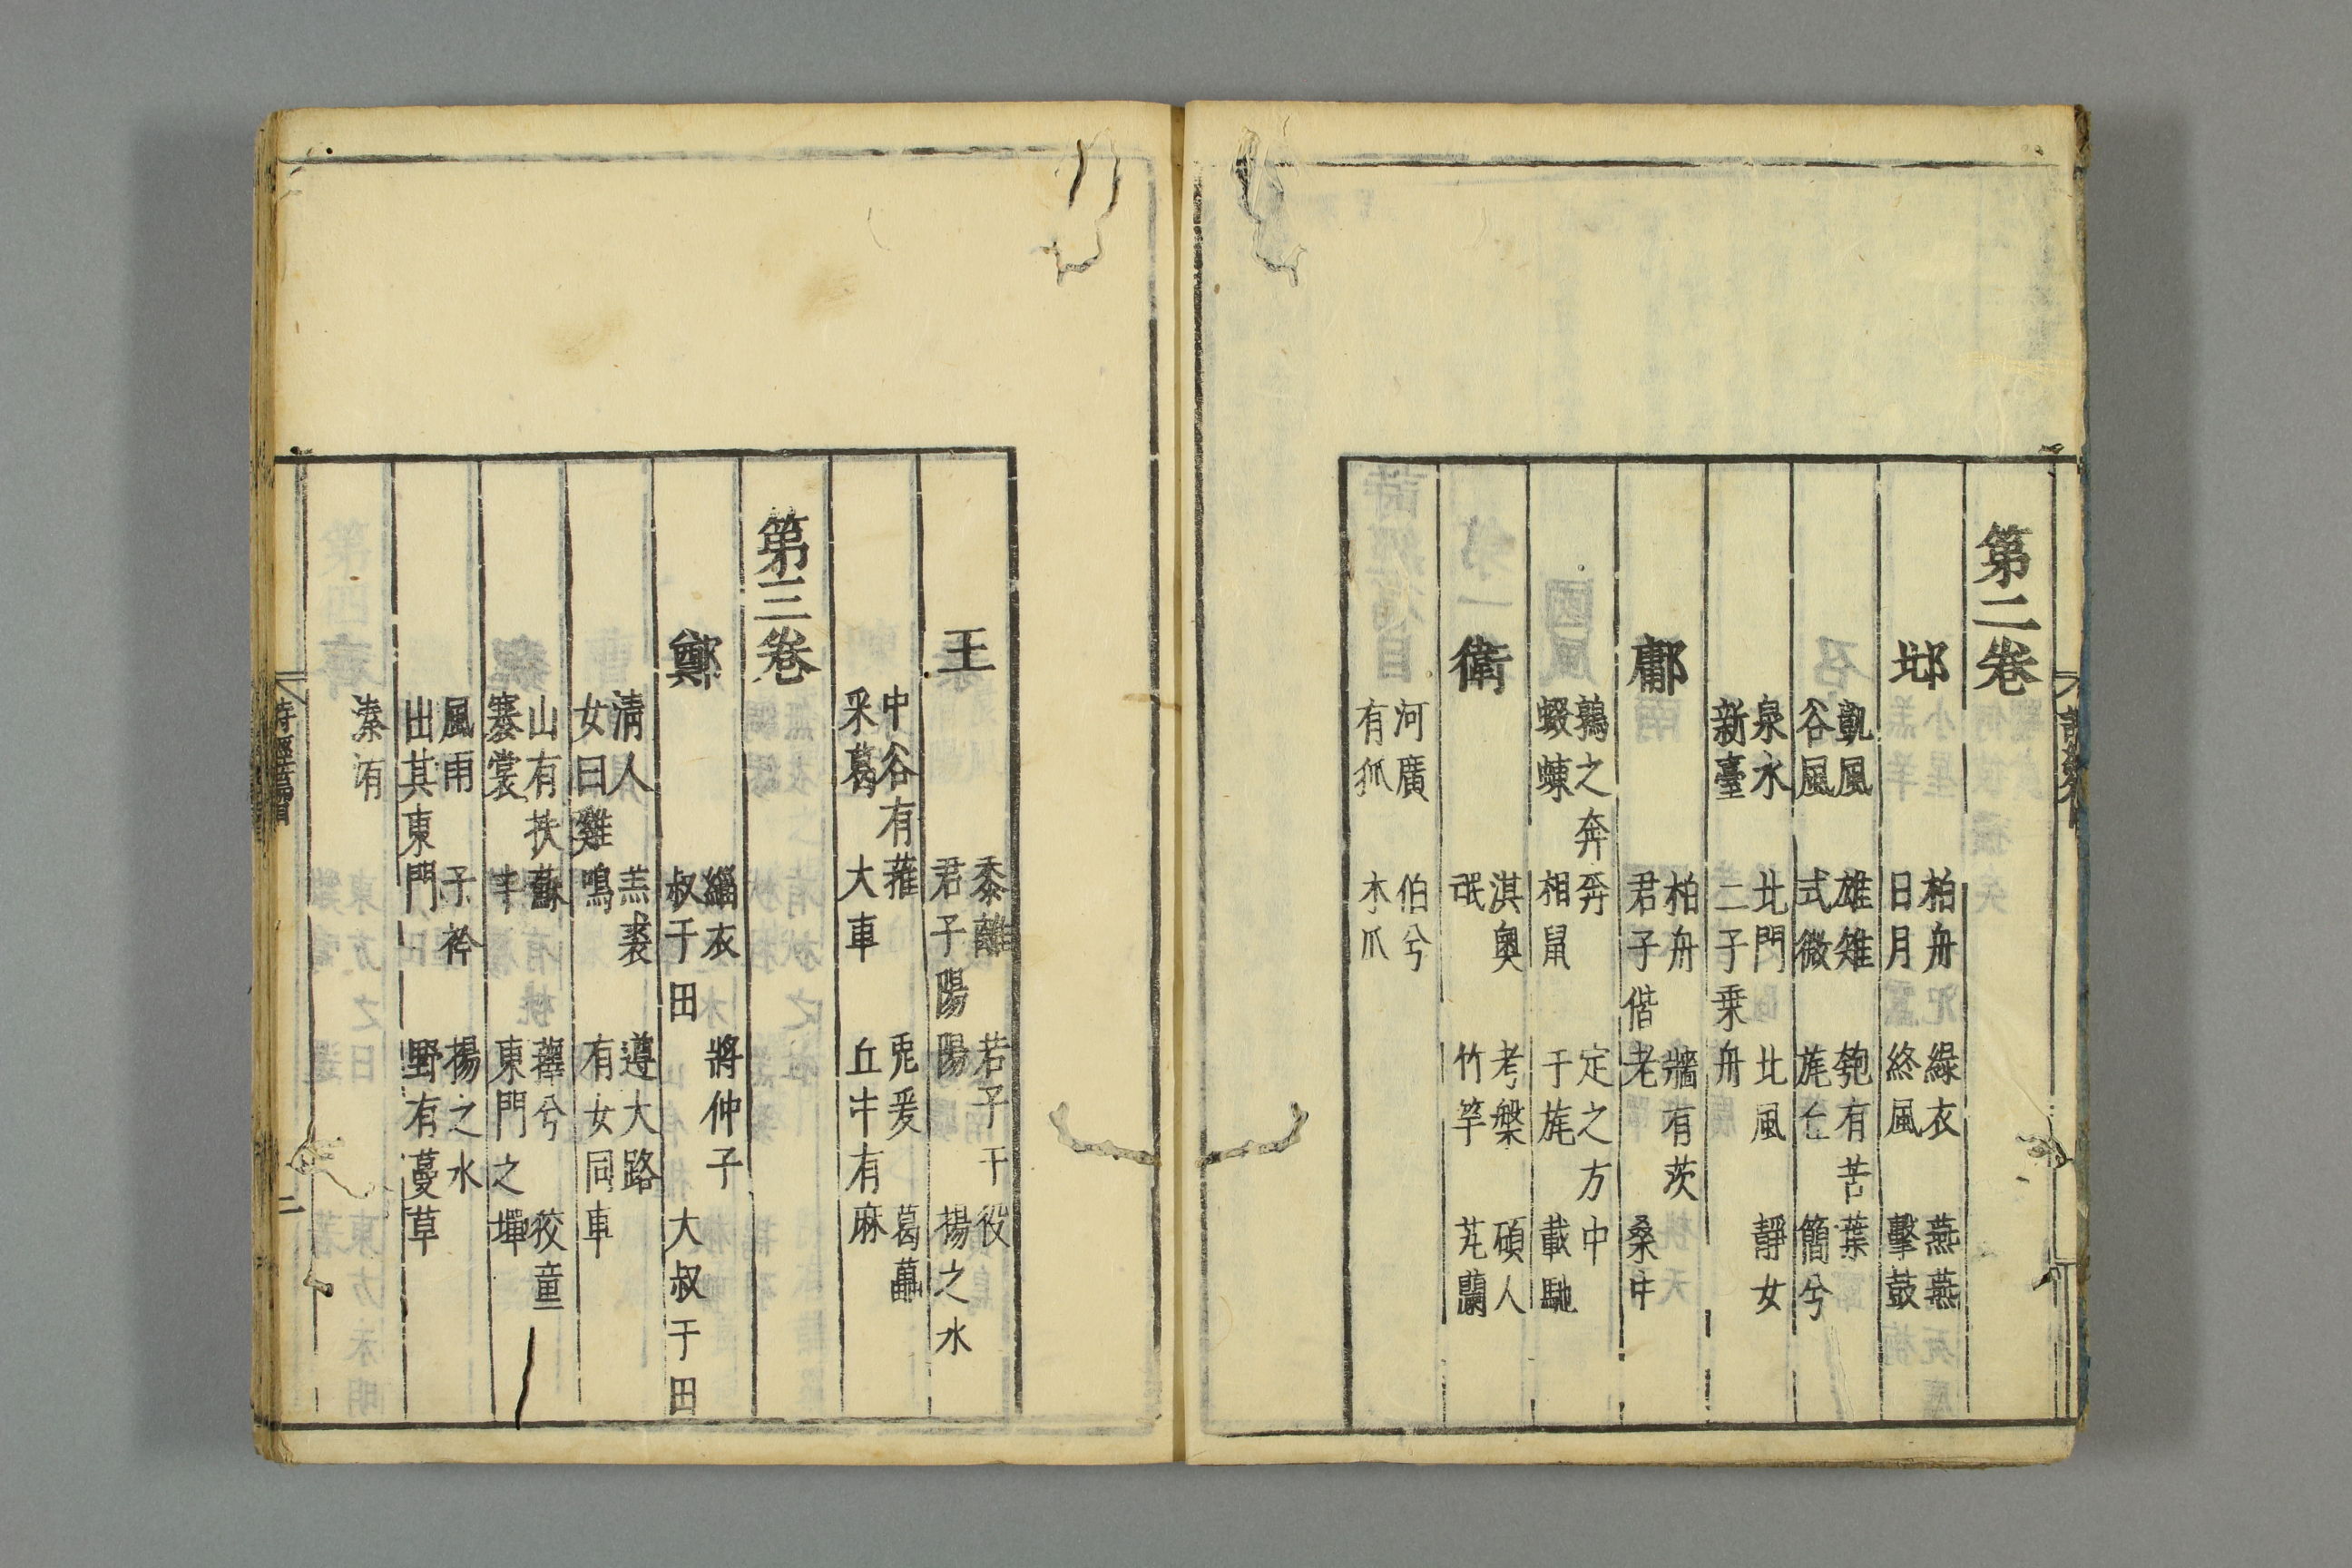 第二卷
邶
柏舟 綠衣 燕燕
日月 終風 擊鼓
凱風 雄雉 匏有苦葉
谷風 式微 旄丘 簡兮
泉水 北門 北風 靜女
新臺 二子乗舟
鄘
柏舟 牆有茨
君子偕老 桑中
鶉之奔奔 定之方中
蝃蝀 相鼠 干旄 載馳
衛
淇奧 考槃 碩人
氓 竹竿 芄蘭
河廣 伯兮
有狐 木瓜
王
黍離 君子于役
君子陽陽 揚之水
中谷有蓷 兎爰 葛藟
采葛 大車 丘中有麻
第三卷
鄭
緇衣 將仲子
叔于田 大叔于田
清人 羔裘 遵大路
女曰雞鳴 有女同車
山有扶蘇 蘀兮 狡童
褰裳 丰 東門之墠
風雨 子衿 揚之水
出其東門 野有蔓草
溱洧
詩經篇目 二